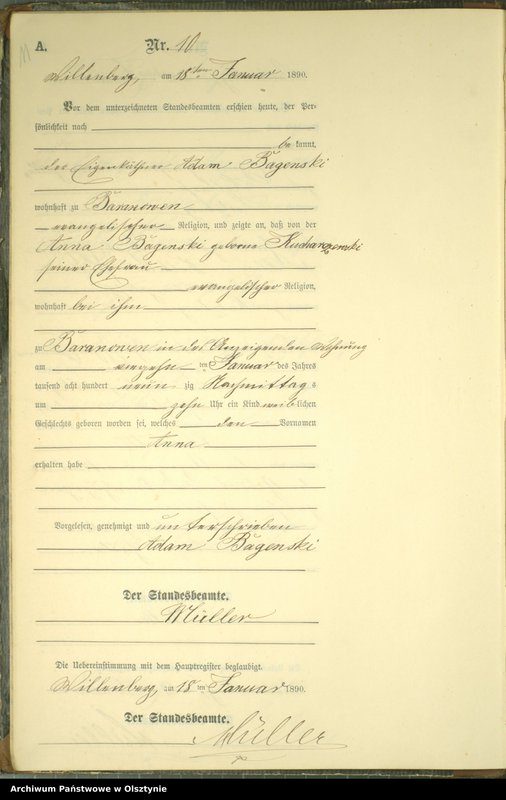 A. Nr. 10
Willenberg, am 18ten Januar 1890.
Vor dem unterzeichneten Standesbeamten erschien heute, der Per-
sönlichkeit nach
be kannt,
der Eigenkäthner Adam Bagenski
wohnhaft zu Baranowen
evangelischer Religion, und zeigte an, daß von der
Anna Bagenski geborne
seiner Ehefrau
evangelischer Religion,
wohnhaft bei ihm
zu Baranowen in des Anzeigenden Wohnung
am vierzehn ten Januar des Jahres
tausend acht hundert neun zig Nachmittag s
um zehn Uhr ein Kind weib lichen
Geschlechts geboren worden sei, welches den Vornamen
Anna
erhalten habe
Vorgelesen, genehmigt und unterschrieben
Adam Bagenski
Der Standesbeamte.
Müller
Die Uebereinstimmung mit dem Hauptregister beglaubigt.
Willenberg, am 18 ten Januar 1890.
Der Standesbeamte.
Müller
Archiwum Państwowe w Olsztynie